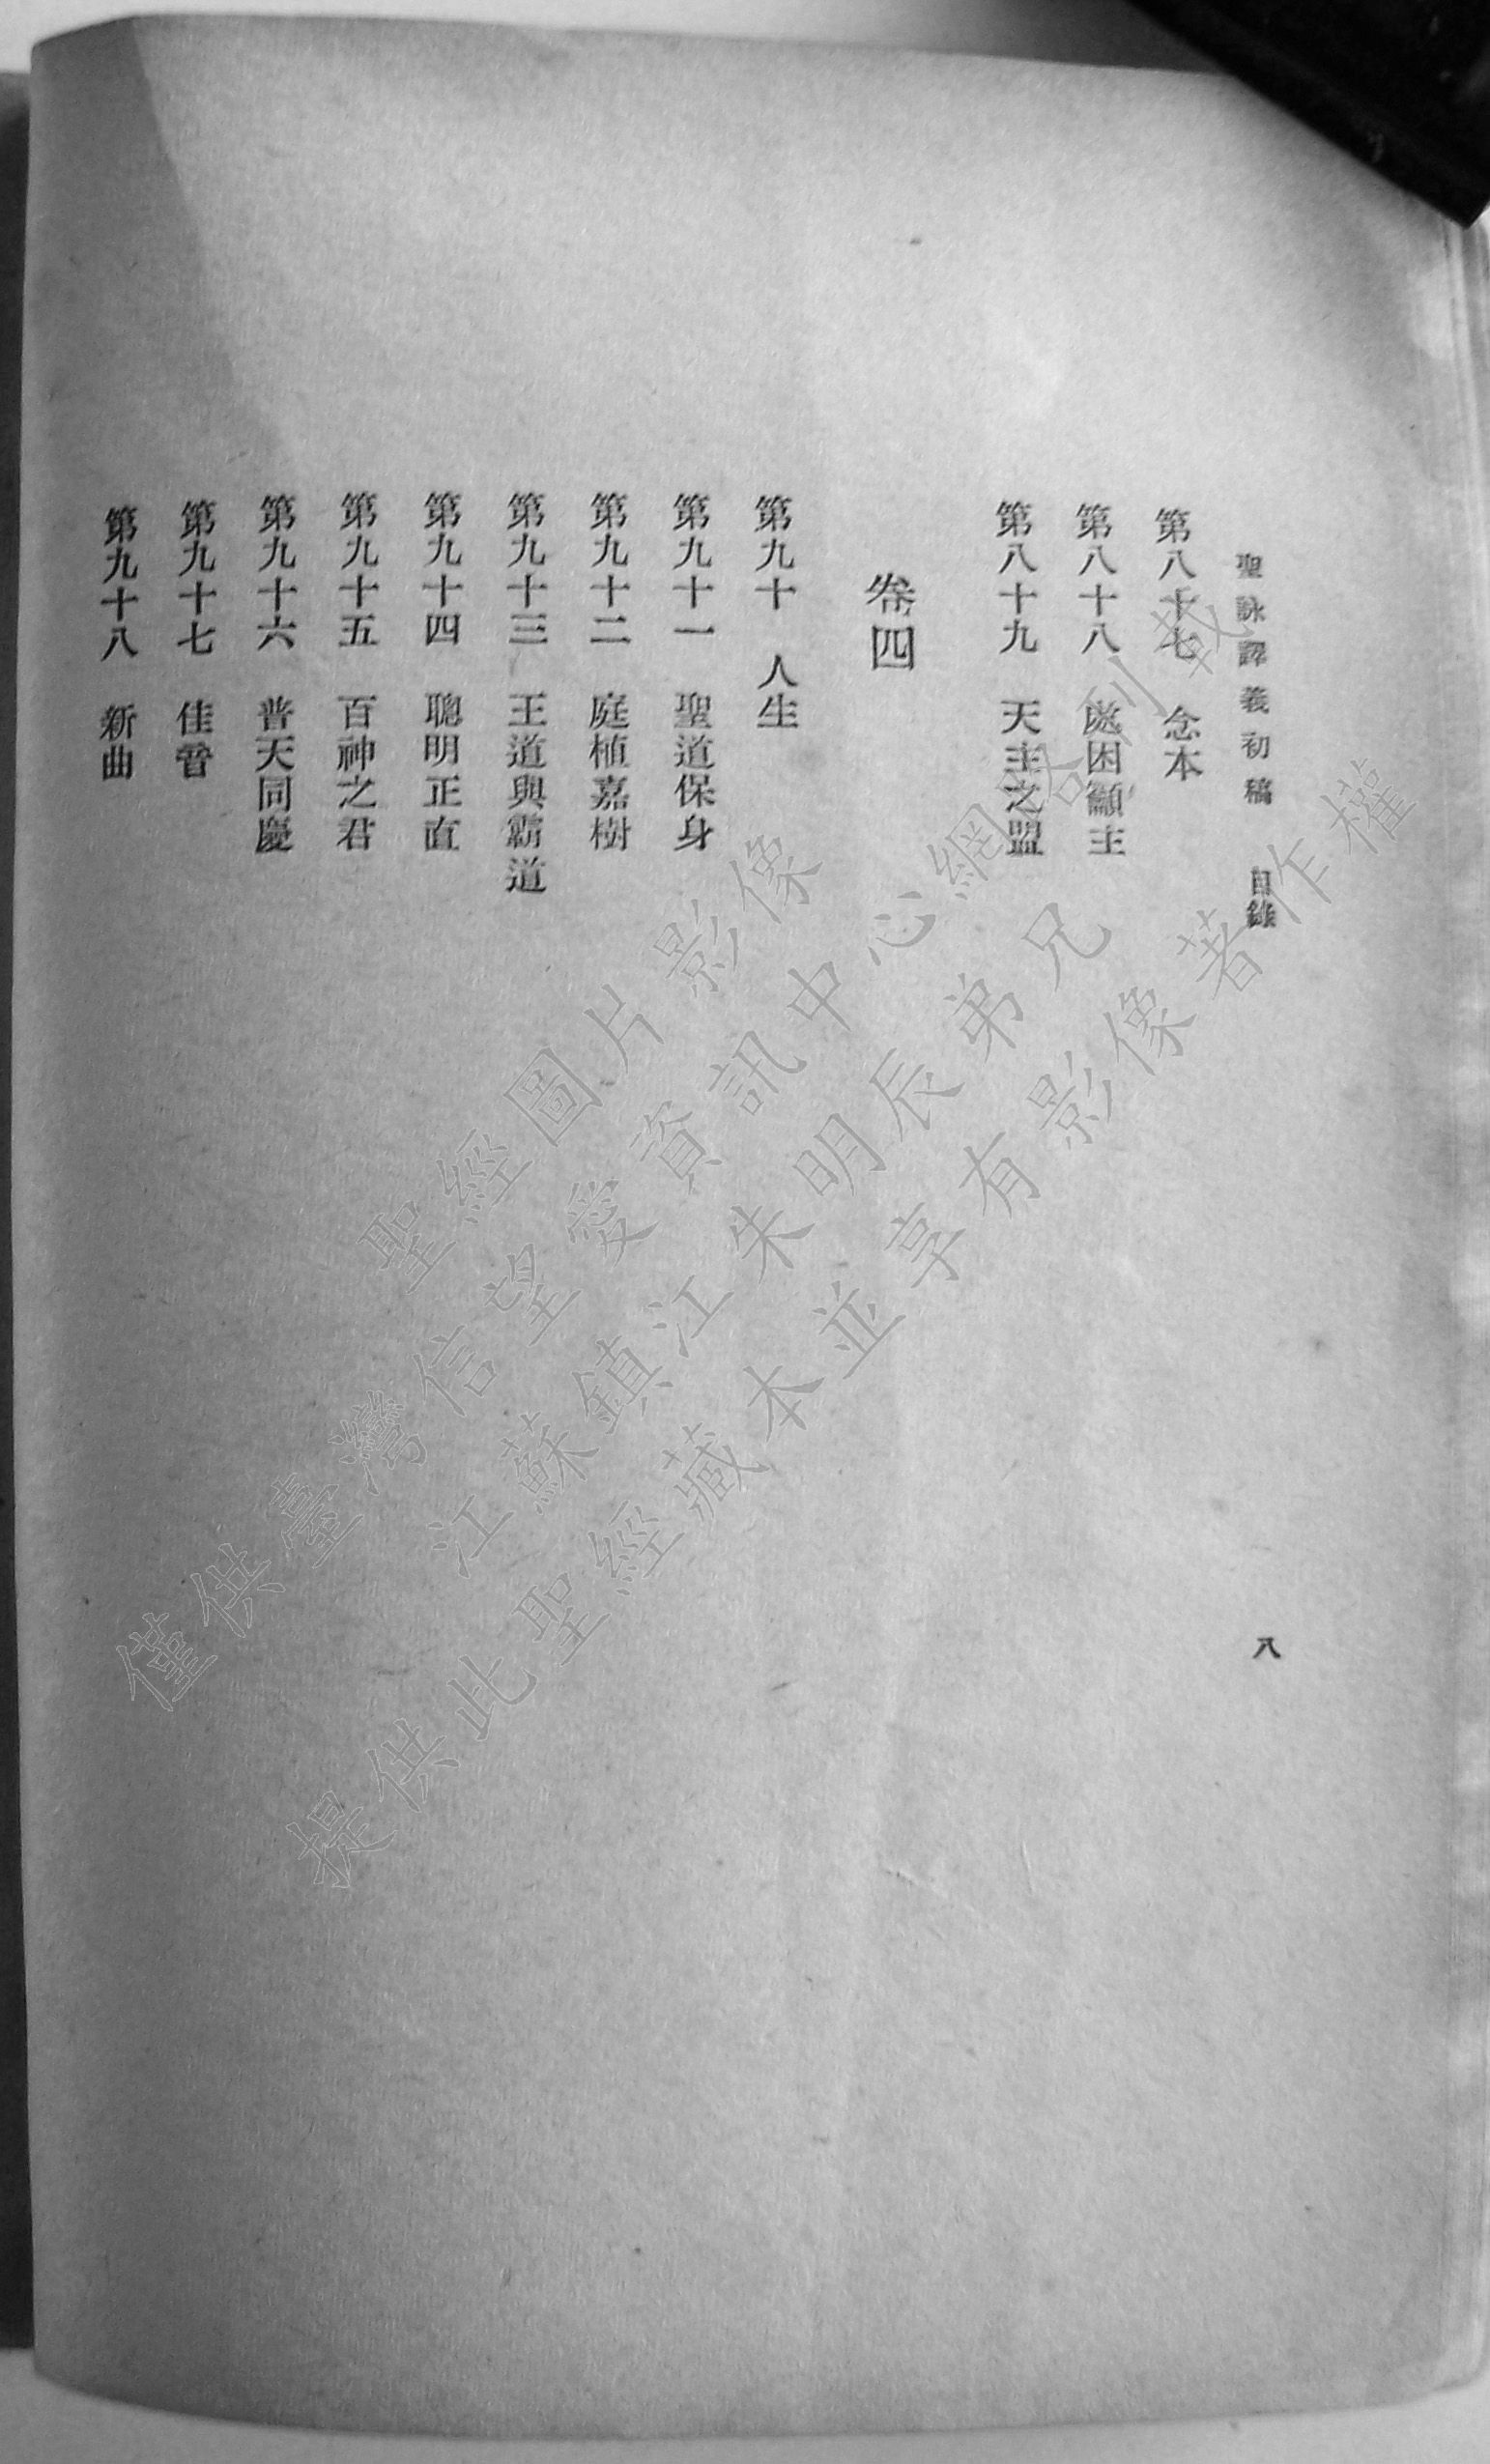 聖詠譯義初稿 目錄
八
第八十七 念本
第八十八 處困籲主
第八十九 天主之盟
卷四
第九十 人生
第九十一 聖道保身
第九十二 庭植嘉樹
第九十三 王道與霸道
第九十四 聰明正直
第九十五 百神之君
第九十六 普天同慶
第九十七 佳音
第九十八 新曲
聖經圖片影像
僅供臺灣信望愛資訊中心網路刊載
江蘇鎮江朱明辰弟兄
提供此聖經藏本並享有影像著作權